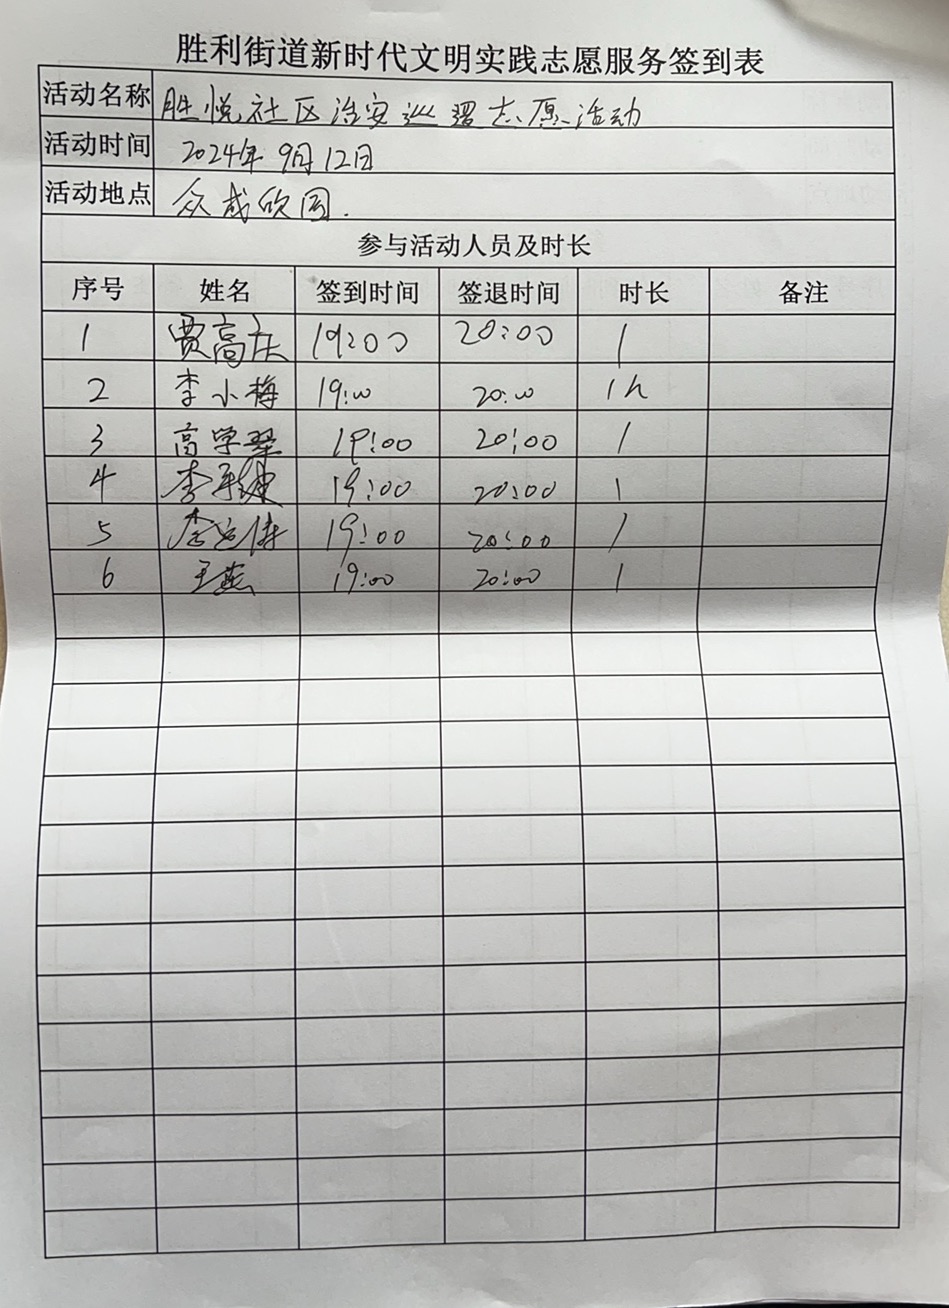 胜利街道新时代文明实践志愿服务签到表
活动名称 胜悦社区治安巡逻志愿活动
活动时间 2024年9月12日
活动地点 众成欣园.
参与活动人员及时长
序号 姓名 签到时间 签退时间 时长 备注
1 贾高庆 19:00 20:00 1
2 李小梅 19:00 20:00 1h
3 高学翠 19:00 20:00 1
4 李 19:00 20:00 1
5 李 19:00 20:00 1
6 王燕 19:00 20:00 1